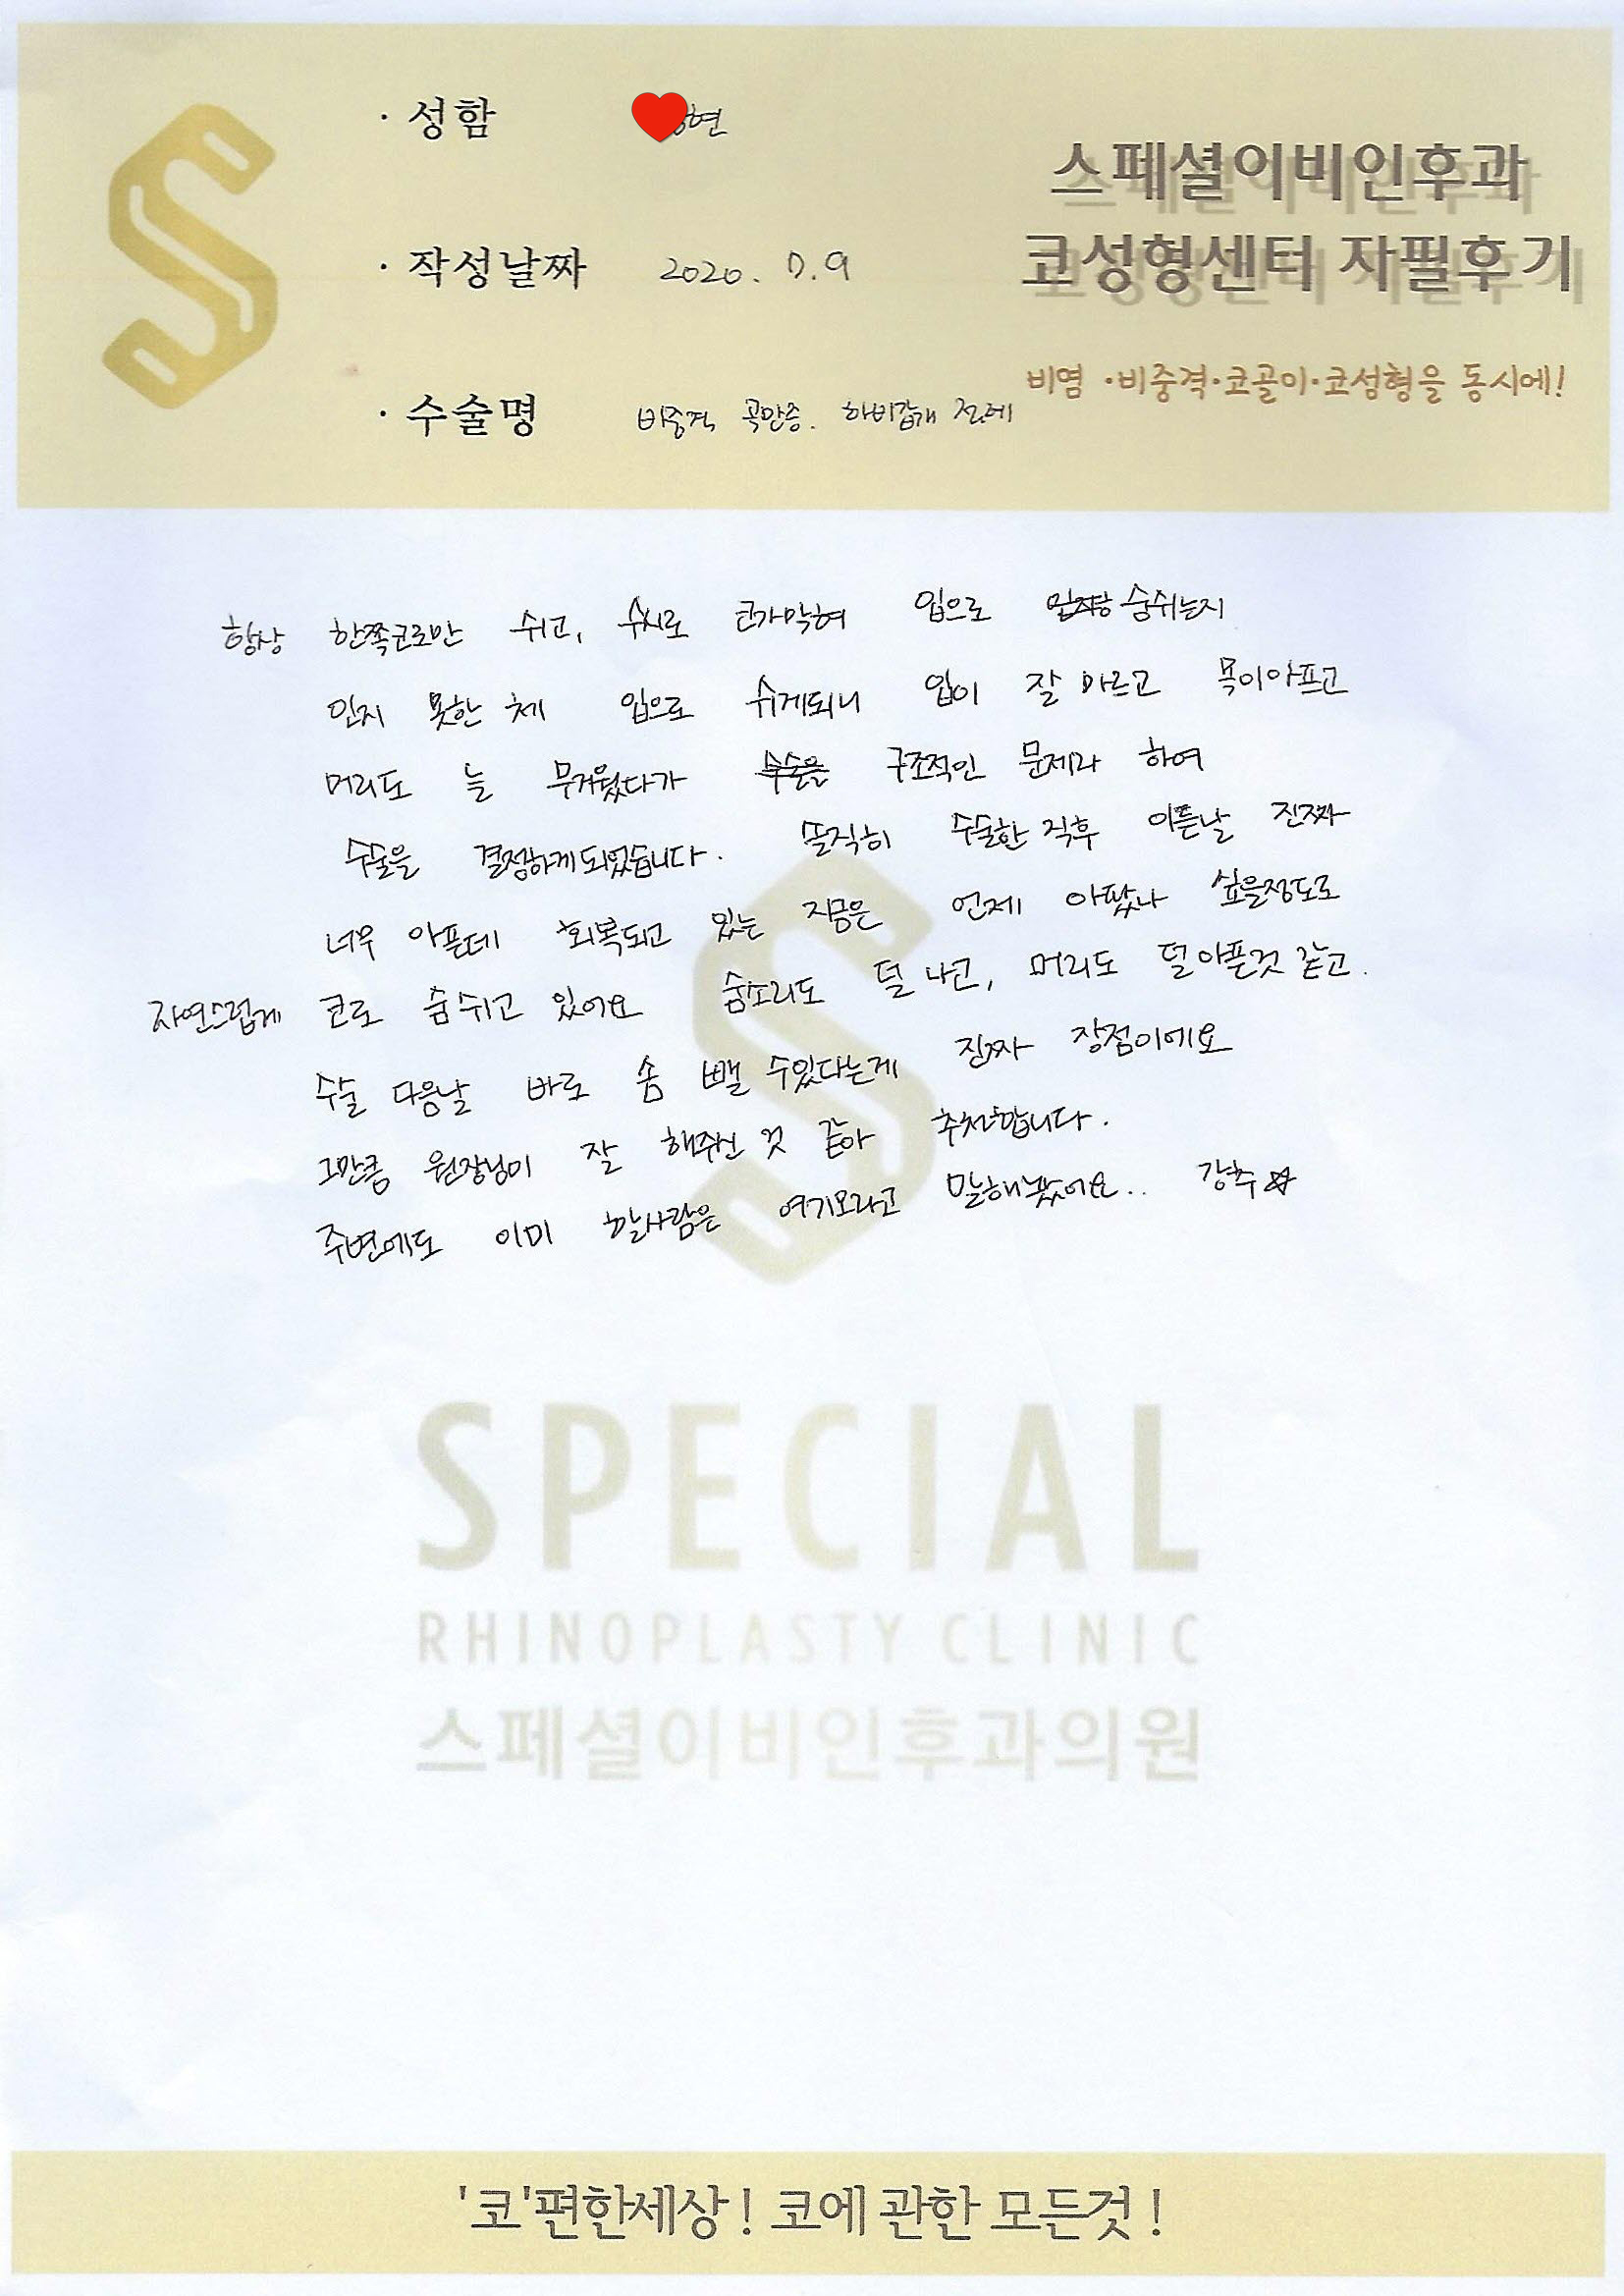 · 성함 현
스페셜이비인후과
· 작성날짜 2020. 7. 9
코성형센터 자필후기
비염 ·비중격·코골이·코성형을 동시에!
· 수술명 비중격 곡만증. 하비갑개 절제
항상 한쪽코로만 쉬고, 수시로 코가막혀 입으로 숨쉬는지
인지 못한 체 입으로 쉬게되니 입이 잘 마르고 목이아프고
머리도 늘 무거웠다가 수술을 구조적인 문제라 하여
수술을 결정하게되었습니다. 솔직히 수술한 직후 이튿날 진짜
너무 아픈데 회복되고 있는 지금은 언제 아팠나 싶을정도로
자연스럽게 코로 숨쉬고 있어요 숨소리도 덜 나고, 머리도 덜아픈것 같고.
수술 다음날 바로 솜 뺄 수있다는게 진짜 장점이에요
그만큼 원장님이 잘 해주신 것 같아 추천합니다.
주변에도 이미 할사람은 여기오라고 말해놨어요.. 강추☆
SPECIAL
RHINOPLASTY CLINIC
스페셜이비인후과의원
'코'편한세상! 코에 관한 모든것!